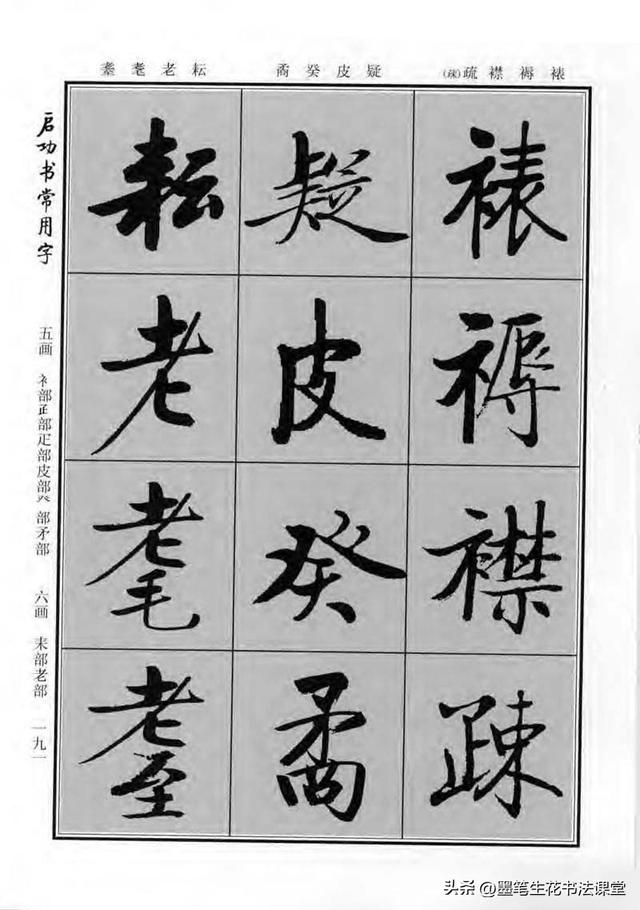 裱褥襟疏(疎)
疑皮癸矞
耘老耄耋
裱褥襟疎
疑皮癸矞
耘老耄耋
启功书常用字
五画 衤部𤴔部疋部皮部癶部矛部 六画 耒部老部 一九一
头条 @墨笔生花书法课堂